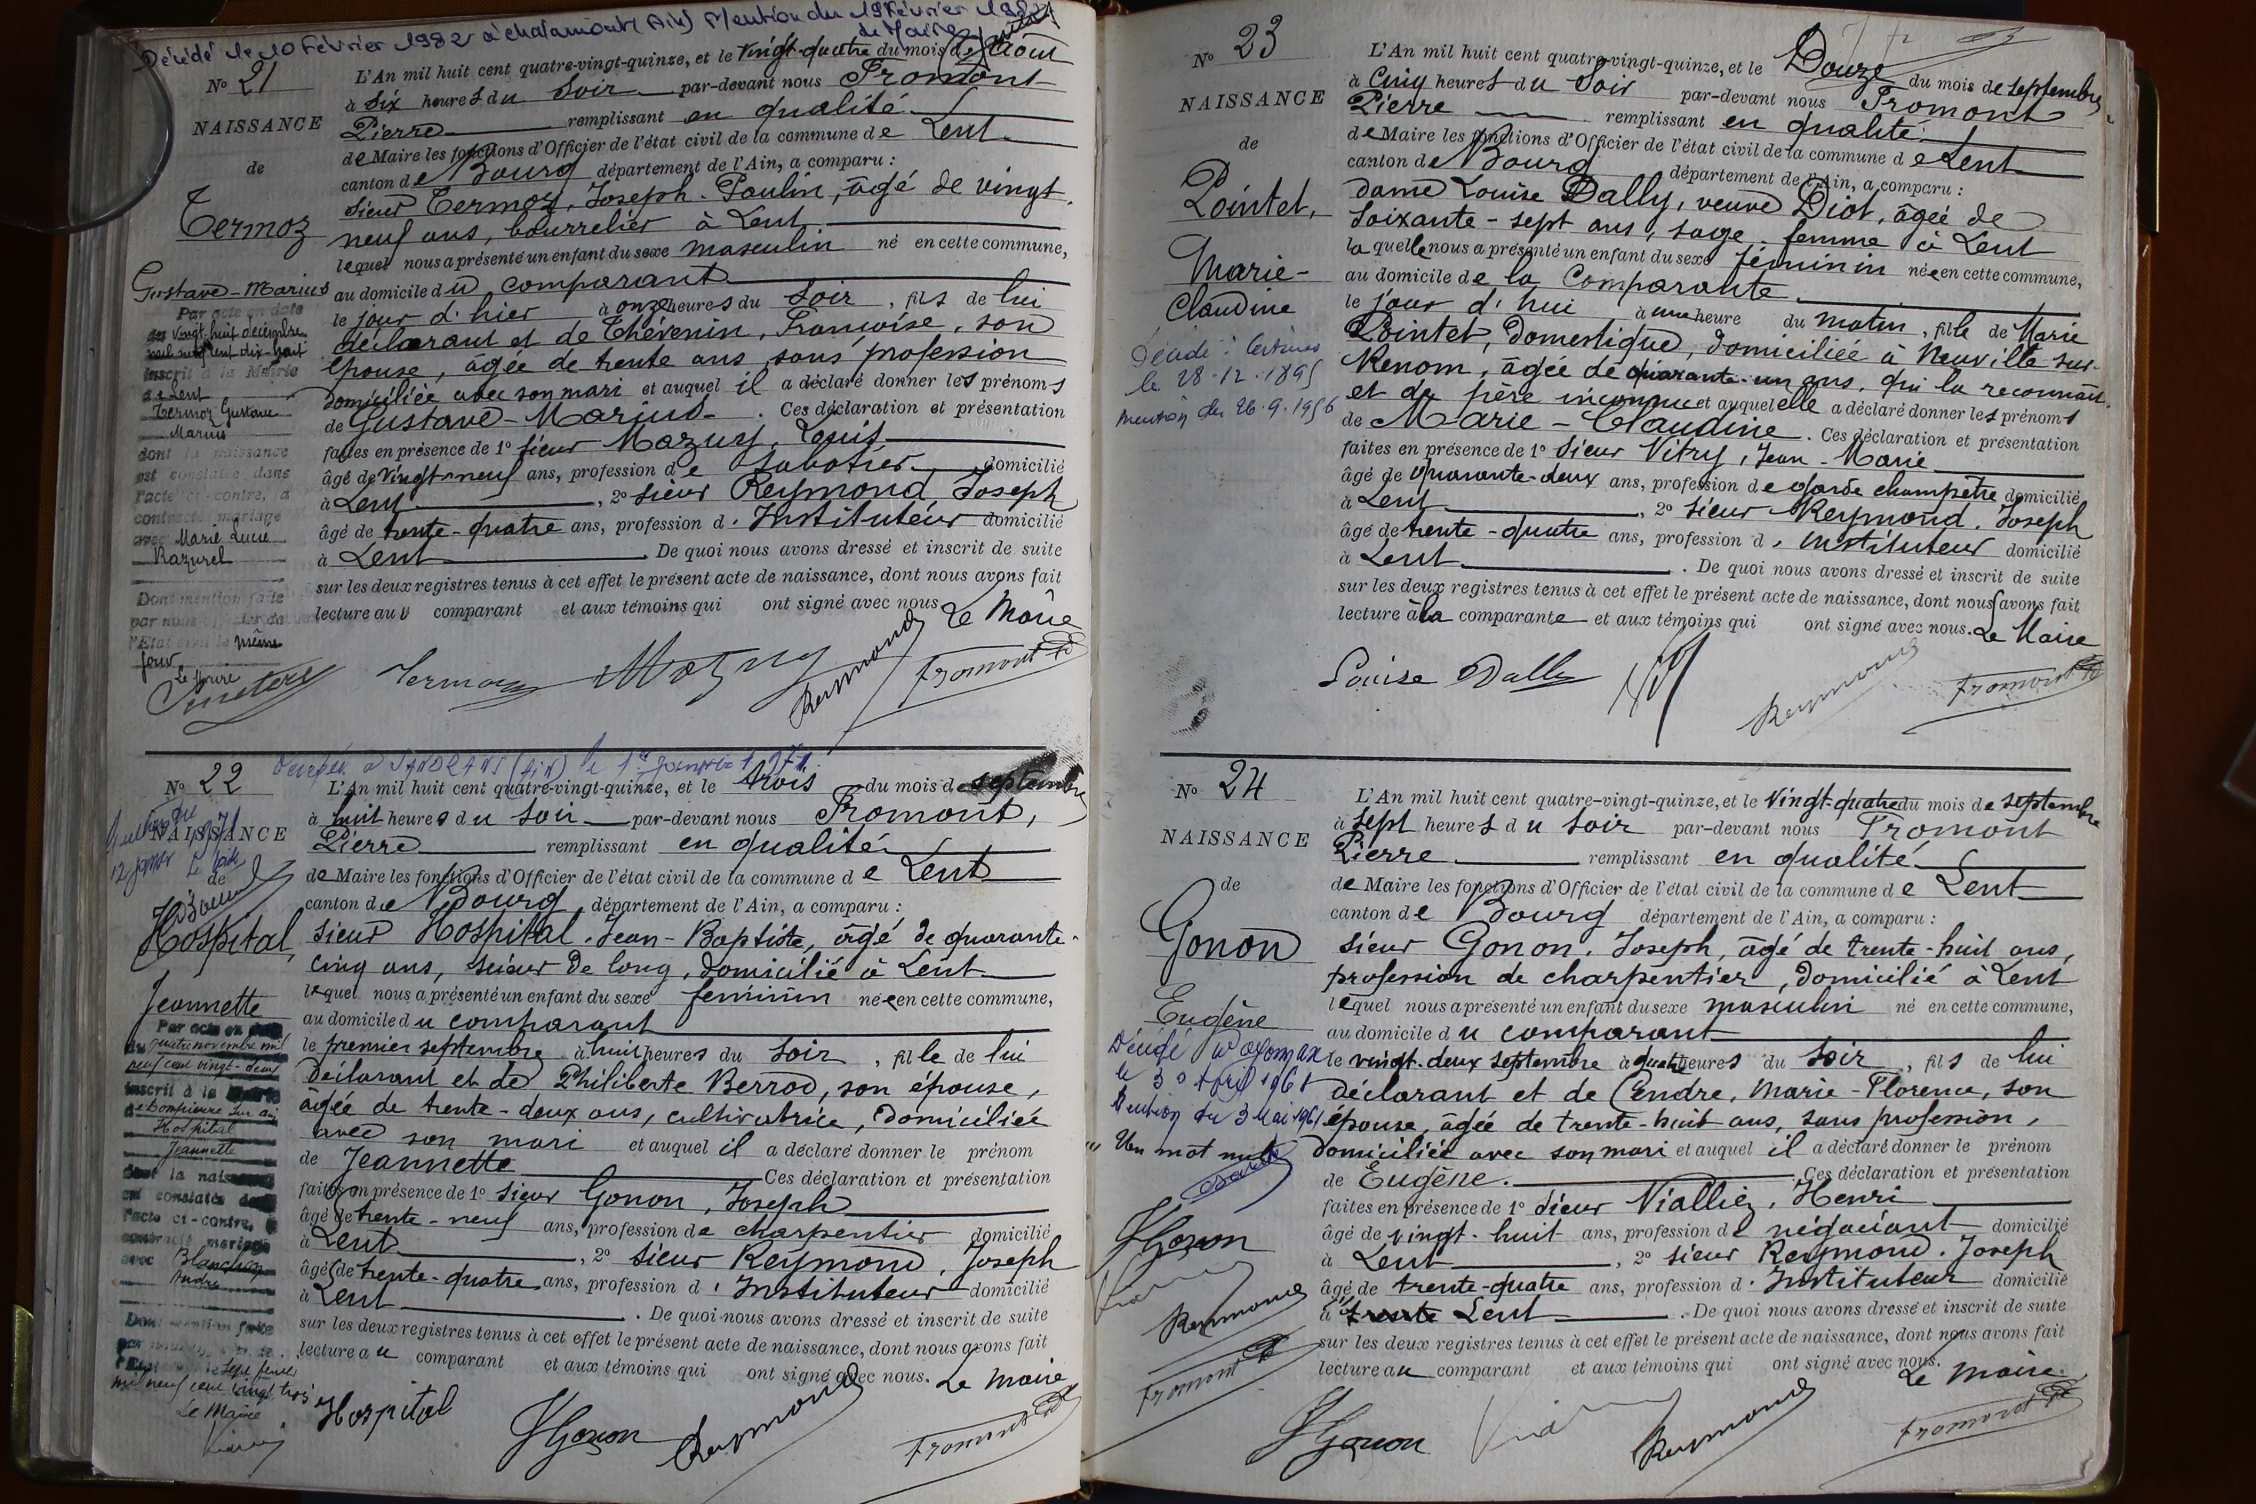 Décédé le 10 Février 1982 à Chalamont (Ain) Mention du 19 Février 1982
Le Maire
No 21
NAISSANCE
de
Termoz
Gustave-Marius
Par acte en date
du vingt-huit décembre
mil neuf cent dix-huit
inscrit à la Mairie
de Lent
Termoz Gustave
Marius
dont la naissance
est constatée dans
l'acte ci-contre, a
contracté mariage
avec Marie Lucie
Razurel
Dont mention faite
par nous officier de
l'Etat civil le même
jour
Le Maire
L'An mil huit cent quatre-vingt-quinze, et le vingt-quatre du mois de Août
à six heures du soir par-devant nous Fromont
Pierre remplissant en qualité
de Maire les fonctions d'Officier de l'état civil de la commune de Lent
canton de Bourg département de l'Ain, a comparu :
sieur Termoz, Joseph-Paulin, âgé de vingt-
neuf ans, bourrelier à Lent
lequel nous a présenté un enfant du sexe masculin né en cette commune,
au domicile du comparant
le jour d'hier à onze heures du soir, fils de lui
déclarant et de Thévenin, Françoise, son
épouse, âgée de trente ans, sans profession
domiciliée avec son mari et auquel il a déclaré donner les prénoms
de Gustave-Marius. Ces déclaration et présentation
faites en présence de 1o sieur Mazuy, Louis
âgé de vingt-neuf ans, profession de sabotier domicilié
à Lent, 2o sieur Reymond, Joseph
âgé de trente-quatre ans, profession d'Instituteur domicilié
à Lent. De quoi nous avons dressé et inscrit de suite
sur les deux registres tenus à cet effet le présent acte de naissance, dont nous avons fait
lecture au comparant et aux témoins qui ont signé avec nous. Le Maire
Termoz Mazuy Reymond Fromont
Décédée à SANDRANS (Ain) le 1er janvier 1971.
No 22
NAISSANCE
de
Hospital,
Jeannette
Par acte en date
du quatre novembre mil
neuf cent vingt-deux
inscrit à la Mairie
de Dompierre sur Ain
Hospital
Jeannette
dont la naissance
est constatée dans
l'acte ci-contre, a
contracté mariage
avec Blanchon
André
Dont mention faite
sept février
mil neuf cent vingt trois
Le Maire
L'An mil huit cent quatre-vingt-quinze, et le trois du mois de septembre
à huit heures du soir par-devant nous Fromont,
Pierre remplissant en qualité
de Maire les fonctions d'Officier de l'état civil de la commune de Lent
canton de Bourg, département de l'Ain, a comparu :
sieur Hospital, Jean-Baptiste, âgé de quarante-
cinq ans, scieur de long, domicilié à Lent
lequel nous a présenté un enfant du sexe féminin née en cette commune,
au domicile du comparant
le premier septembre à huit heures du soir, fille de lui
déclarant et de Philiberte Berrod, son épouse,
âgée de trente-deux ans, cultivatrice, domiciliée
avec son mari et auquel il a déclaré donner le prénom
de Jeannette Ces déclaration et présentation
faites en présence de 1o sieur Gonon, Joseph
âgé de trente-neuf ans, profession de charpentier domicilié
à Lent, 2o sieur Reymond, Joseph
âgé de trente-quatre ans, profession d'Instituteur domicilié
à Lent. De quoi nous avons dressé et inscrit de suite
sur les deux registres tenus à cet effet le présent acte de naissance, dont nous avons fait
lecture au comparant et aux témoins qui ont signé avec nous. Le Maire
Hospital JGonon Reymond Fromont
No 23
NAISSANCE
de
Pointet,
Marie-
Claudine
Décédé à Certines
le 28.12.1895
mention du 26.9.1956
L'An mil huit cent quatre-vingt-quinze, et le Douze du mois de septembre
à cinq heures du soir par-devant nous Fromont
Pierre remplissant en qualité
de Maire les fonctions d'Officier de l'état civil de la commune de Lent
canton de Bourg département de l'Ain, a comparu :
dame Louise Dally, veuve Diot, âgée de
soixante-sept ans, sage-femme à Lent
laquelle nous a présenté un enfant du sexe féminin née en cette commune,
au domicile de la Comparante
le jour d'hui à une heure du matin, fille de Marie
Pointet, domestique, domiciliée à Neuville-sur-
Renom, âgée de quarante-un ans, qui la reconnaît
et de père inconnu et auquel elle a déclaré donner les prénoms
de Marie-Claudine. Ces déclaration et présentation
faites en présence de 1o sieur Vitry, Jean-Marie
âgé de quarante-deux ans, profession de garde champêtre domicilié
à Lent, 2o sieur Reymond, Joseph
âgé de trente-quatre ans, profession d'Instituteur domicilié
à Lent. De quoi nous avons dressé et inscrit de suite
sur les deux registres tenus à cet effet le présent acte de naissance, dont nous avons fait
lecture à la comparante et aux témoins qui ont signé avec nous. Le Maire
Louise Dally Reymond Fromont
No 24
NAISSANCE
de
Gonon
Eugène
Décédé
le 30 Avril 1961
Mention du 3 Mai 1961
Un mot nul
JGonon
Reymond
Fromont
L'An mil huit cent quatre-vingt-quinze, et le vingt-quatre du mois de septembre
à sept heures du soir par-devant nous Fromont
Pierre remplissant en qualité
de Maire les fonctions d'Officier de l'état civil de la commune de Lent
canton de Bourg département de l'Ain, a comparu :
sieur Gonon, Joseph, âgé de trente-huit ans,
profession de charpentier, domicilié à Lent
lequel nous a présenté un enfant du sexe masculin né en cette commune,
au domicile du comparant
le vingt-deux septembre à quatre heures du soir, fils de lui
déclarant et de Cendre, Marie-Florence, son
épouse, âgée de trente-huit ans, sans profession,
domiciliée avec son mari et auquel il a déclaré donner le prénom
de Eugène. Ces déclaration et présentation
faites en présence de 1o sieur Nialliez, Henri
âgé de vingt-huit ans, profession de négociant domicilié
à Lent, 2o sieur Reymond, Joseph
âgé de trente-quatre ans, profession d'Instituteur domicilié
à trente Lent. De quoi nous avons dressé et inscrit de suite
sur les deux registres tenus à cet effet le présent acte de naissance, dont nous avons fait
lecture au comparant et aux témoins qui ont signé avec nous. Le Maire
JGonon Reymond Fromont